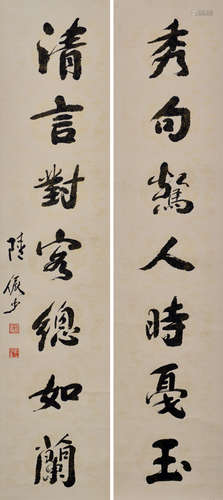 秀句驚人時戛玉
清言對客總如蘭
陸儼少